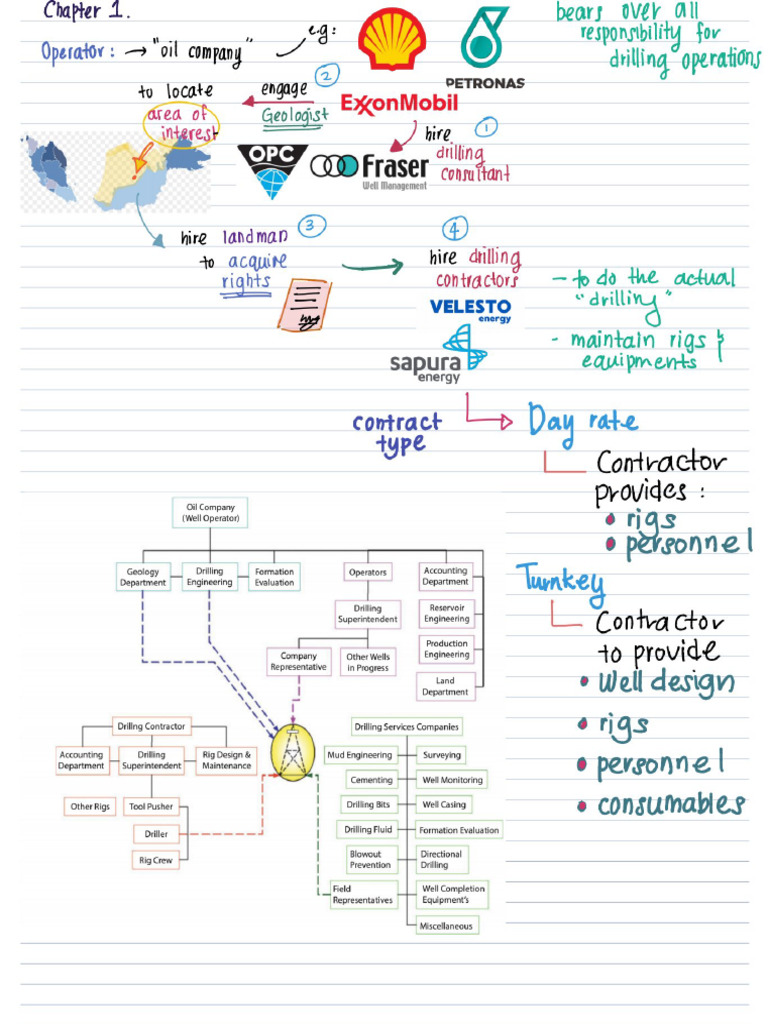 Chapter 1.
Operator: → "oil company"
e.g:
PETRONAS
ExxonMobil
bears over all
responsibility for
drilling operations
1
hire
drilling
consultant
OPC
Fraser
Well Management
2
engage
Geologist
to locate
area of
interest
3
hire landman
to acquire
rights
4
hire drilling
contractors
VELESTO
energy
sapura
energy
- to do the actual
"drilling"
- maintain rigs &
equipments
contract
type
Day rate
Contractor
provides :
• rigs
• personnel
Turnkey
Contractor
to provide
• Well design
• rigs
• personnel
• consumables
Oil Company
(Well Operator)
Geology
Department
Drilling
Engineering
Formation
Evaluation
Operators
Accounting
Department
Drilling
Superintendent
Reservoir
Engineering
Company
Representative
Other Wells
in Progress
Production
Engineering
Land
Department
Drilling Contractor
Accounting
Department
Drilling
Superintendent
Rig Design &
Maintenance
Other Rigs
Tool Pusher
Driller
Rig Crew
Drilling Services Companies
Mud Engineering
Surveying
Cementing
Well Monitoring
Drilling Bits
Well Casing
Drilling Fluid
Formation Evaluation
Blowout
Prevention
Directional
Drilling
Field
Representatives
Well Completion
Equipment's
Miscellaneous